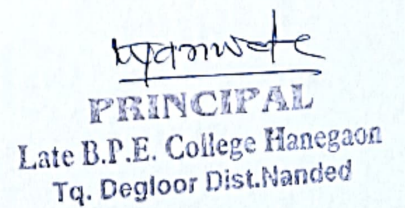 PRINCIPAL
Late B.P.E. College Hanegaon
Tq. Degloor Dist.Nanded